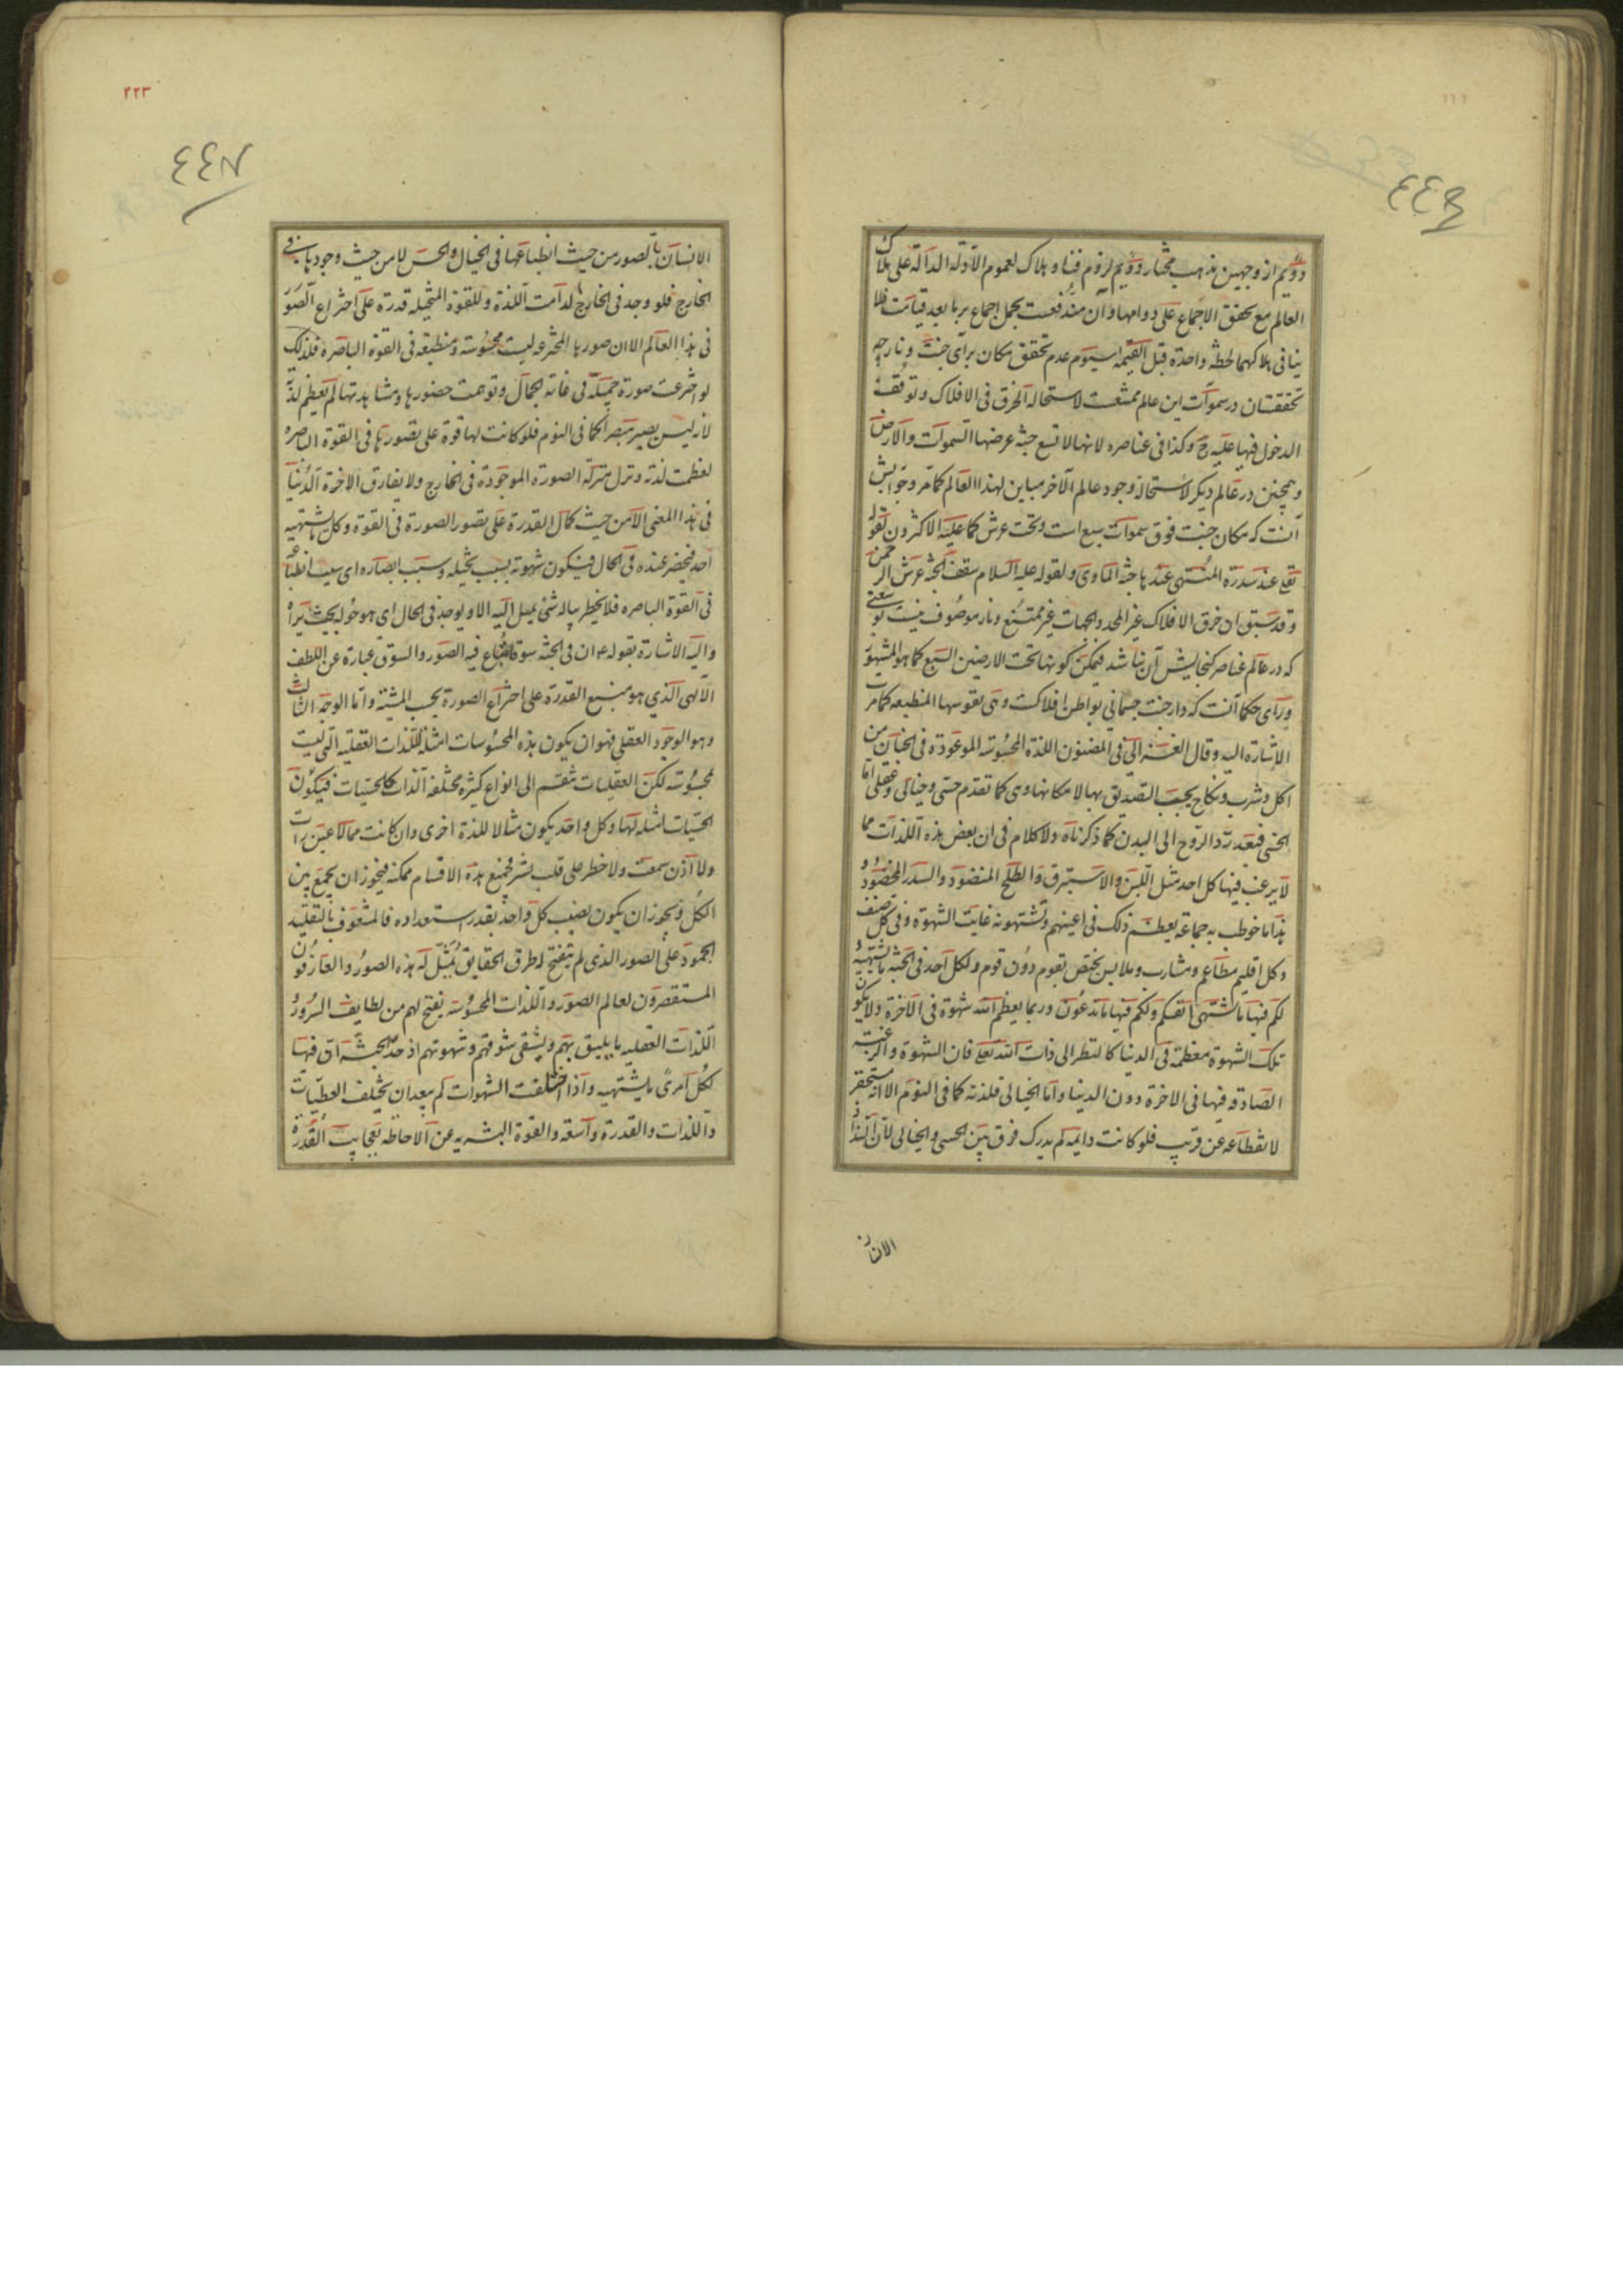 دویم از وجهین مذهب مختار دویم لزوم فنا و هلاک لعموم الادله الدالة علی هلاک
العالم مع تحقق الاجماع علی دوامها و آن مندفعست بحمل اجماع بر ما بعد قیامت فلا
ینافی هلاکهما لحظة واحدة قبل القیمه سیوم عدم تحقق مکان برای جنت و نار چه
تحققشان در سموات این عالم ممتنعست لاستحالة الخرق فی الافلاک و توقف
الدخول فیها علیه و کذا فی عناصره لانها لا تسع جنة عرضها السموات والارض
و همچنین در عالم دیگر لاستحالة وجود عالم الآخر مباین لهذا العالم کما مر و جوابش
آنست که مکان جنت فوق سموات سبع است و تحت عرش کما علیه الاکثرون لقوله
تعالی عند سدرة المنتهی عندها جنة الماوی و لقوله علیه السلام سقف الجنة عرش الرحمن
و قد سبق ان خرق الافلاک غیر المحدد الجهات غیر ممتنع و نار موصوف نیست بوسعتی
که در عالم عناصر گنجایش آن نباشد فیمکن کونها تحت الارضین السبع کما هو المشهور
و رای حکما آنست که دار جنت جسمانی بواطن افلاکست و هی نفوسها المنطبعه کما مر
الاشارة الیه و قال الغزالی فی المضنون اللذة المحسوسه الموعودة فی الجنان من
اکل و شرب و نکاح یجب التصدیق بها لامکانها و هی کما تقدم حسی و خیالی و عقلی اما
الحسی فبعد رد الروح الی البدن کما ذکرناه ولا کلام فی ان بعض هذه اللذات مما
لا یرغب فیها کل احد مثل اللبن والاستبرق والطلح المنضود والسدر المخضود و
هذا ما خوطب به جماعة یعظم ذلک فی اعینهم و تشتهونه غایت الشهوة و فی کل صنف
و کل اقلیم مطاعم و مشارب و ملابس یختص بقوم دون قوم و لکل احد فی الجنة ما یشتهیه
لکم فیها ما تشتهی انفسکم و لکم فیها ما تدعون و ربما یعظم الله شهوة فی الآخرة و لا یکون
تلک الشهوة معظمة فی الدنیا کالنظر الی ذات الله تعالی فان الشهوة والرغبة
الصادقه فیها فی الاخرة دون الدنیا و اما الخیالی فلذته کما فی النوم الا انه مستحقر
لانقطاعه عن قریب فلو کانت دایمه لم یدرک فرق بین الحسی والخیالی لان التذاذ
الانسان
٢٢٣
الانسان بالصور من حیث انطباعها فی الخیال والحس لا من حیث وجودها فی
الخارج فلو وجد فی الخارج لدامت اللذة و للقوة المتخیله قدرة علی اختراع الصور
فی هذا العالم الا ان صورها المخترعه لیست محسوسة و منطبعه فی القوة الباصره فلذلک
لو اخترعت صورة جمیلة فی غاته الجمال و توهمت حضورها و مشاهدتها لم یعظم لذته
لانه لیس یصیر مبصرا کما فی النوم فلو کانت لها قوة علی تصورها فی القوة الباصره
لعظمت لذته و نزل منزلة الصورة الموجودة فی الخارج ولا یفارق الاخرة الدنیا
فی هذا المعنی الا من حیث کمال القدرة علی تصور الصورة فی القوة و کل ما یشتهیه
احد فیحضر عنده فی الحال فیکون شهوته بسبب تخیله و سبب ابصاره ای سبب انطباعه
فی القوة الباصره فلا یخطر بباله شئ یمیل الیه الا و یوجد فی الحال ای هو حوله بحیث یراه
والیه الاشارة بقوله ع ان فی الجنة سوقا یباع فیه الصور والسوق عبارة عن اللطف
الالهی الذی هو منبع القدرة علی اختراع الصورة بحسب المشیة و اما الوجه الثالث
و هو الوجود العقلی فهو ان یکون هذه المحسوسات امثلة للذات العقلیه التی لیست
محسوسة لکن العقلیات تنقسم الی انواع کثیره مختلفه الذات کالحسیات فیکون
الحسیات امثلة لها و کل واحد یکون مثالا للذة اخری و ان کانت مما لا عین رات
ولا اذن سمعت ولا خطر علی قلب بشر فجمیع هذه الاقسام ممکنه فیجوز ان یجمع بین
الکل و یجوز ان یکون نصیب کل واحد بقدر استعداده فالمشعوف بالتقلید
الجمود علی الصور الذی لم یفتح له طرق الحقایق تمثل له هذه الصور والعارفون
المستقصرون لعالم الصور واللذات المحسوسه یفتح لهم من لطایف السرور و
اللذات العقلیه ما یلیق بهم و یشفی شوقهم و شهوتهم اذ حد الجنة ان فیها
لکل امری ما یشتهیه و اذا اختلفت الشهوات لم یبعد ان یختلف العطیات
واللذات والقدرة واسعة والقوة البشریه عن الاحاطه بعجایب القدرة